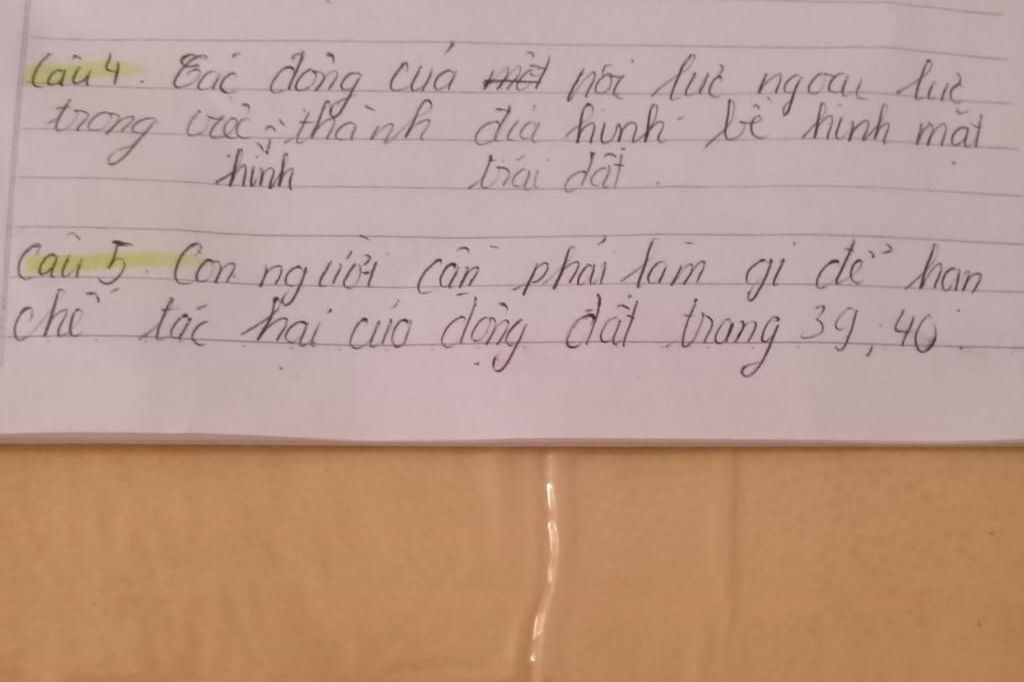 Câu 4. Tác động của một nội lực ngoại lực
trong việc thành địa hình bề hình mặt
hình trái đất.
Câu 5. Con người cần phải làm gì để hạn
chế tác hại của động đất trang 39, 40.